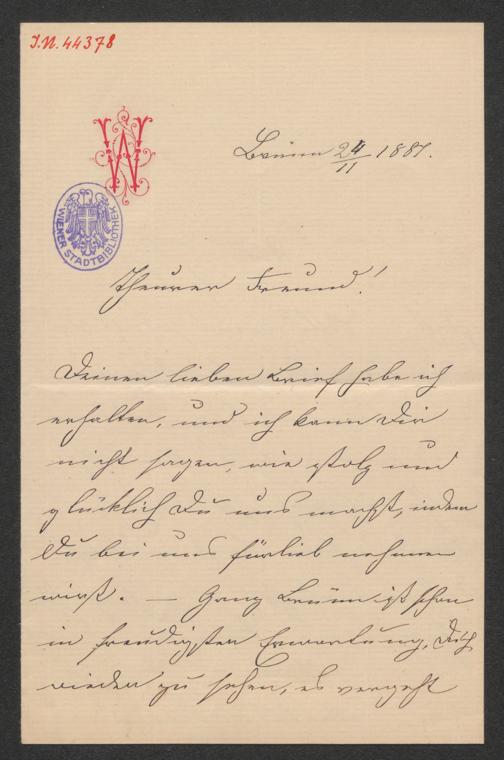 I.N. 44378
W
WIENER STADTBIBLIOTHEK
Brünn 24/11 1881.
Theurer Freund!
Deinen lieben Brief habe ich
erhalten, und ich kann Dir
nicht sagen, wie stolz und
glücklich Du uns machst, indem
Du bei uns fürlieb nehmen
wirst. — Ganz Brünn ist schon
in freudigster Erwartung, Dich
wieder zu sehen, es vergeht